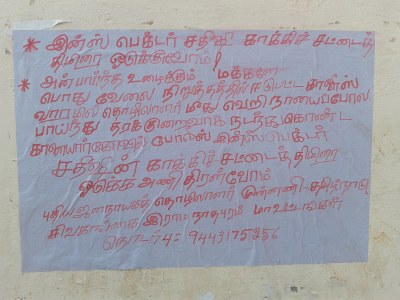 * இன்ஸ் பெக்டர் சதிஷ் காக்கிச் சட்டைத்
திமிரை ஒடுக்குவோம்!
* அன்பார்ந்த உழைக்கும் மக்களே
பொது வேலை நிறுத்தத்தில் ஈடுபட்ட
தொழிலாளர் மீது வெறி நாயைப்போல
பாய்ந்து தரக்குறைவாக நடந்து கொண்ட
காளையார்கோவில் போலீஸ் இன்ஸ்பெக்டர்
சதிஷின் காக்கிச் சட்டைத் திமிரை
ஒடுக்க அணி திரள்வோம்
புதிய ஜனநாயகத் தொழிலாளர் முன்னணி - தமிழ்நாடு
சிவகங்கை இராமநாதபுரம் மாவட்டங்கள்
தொடர்புக்: